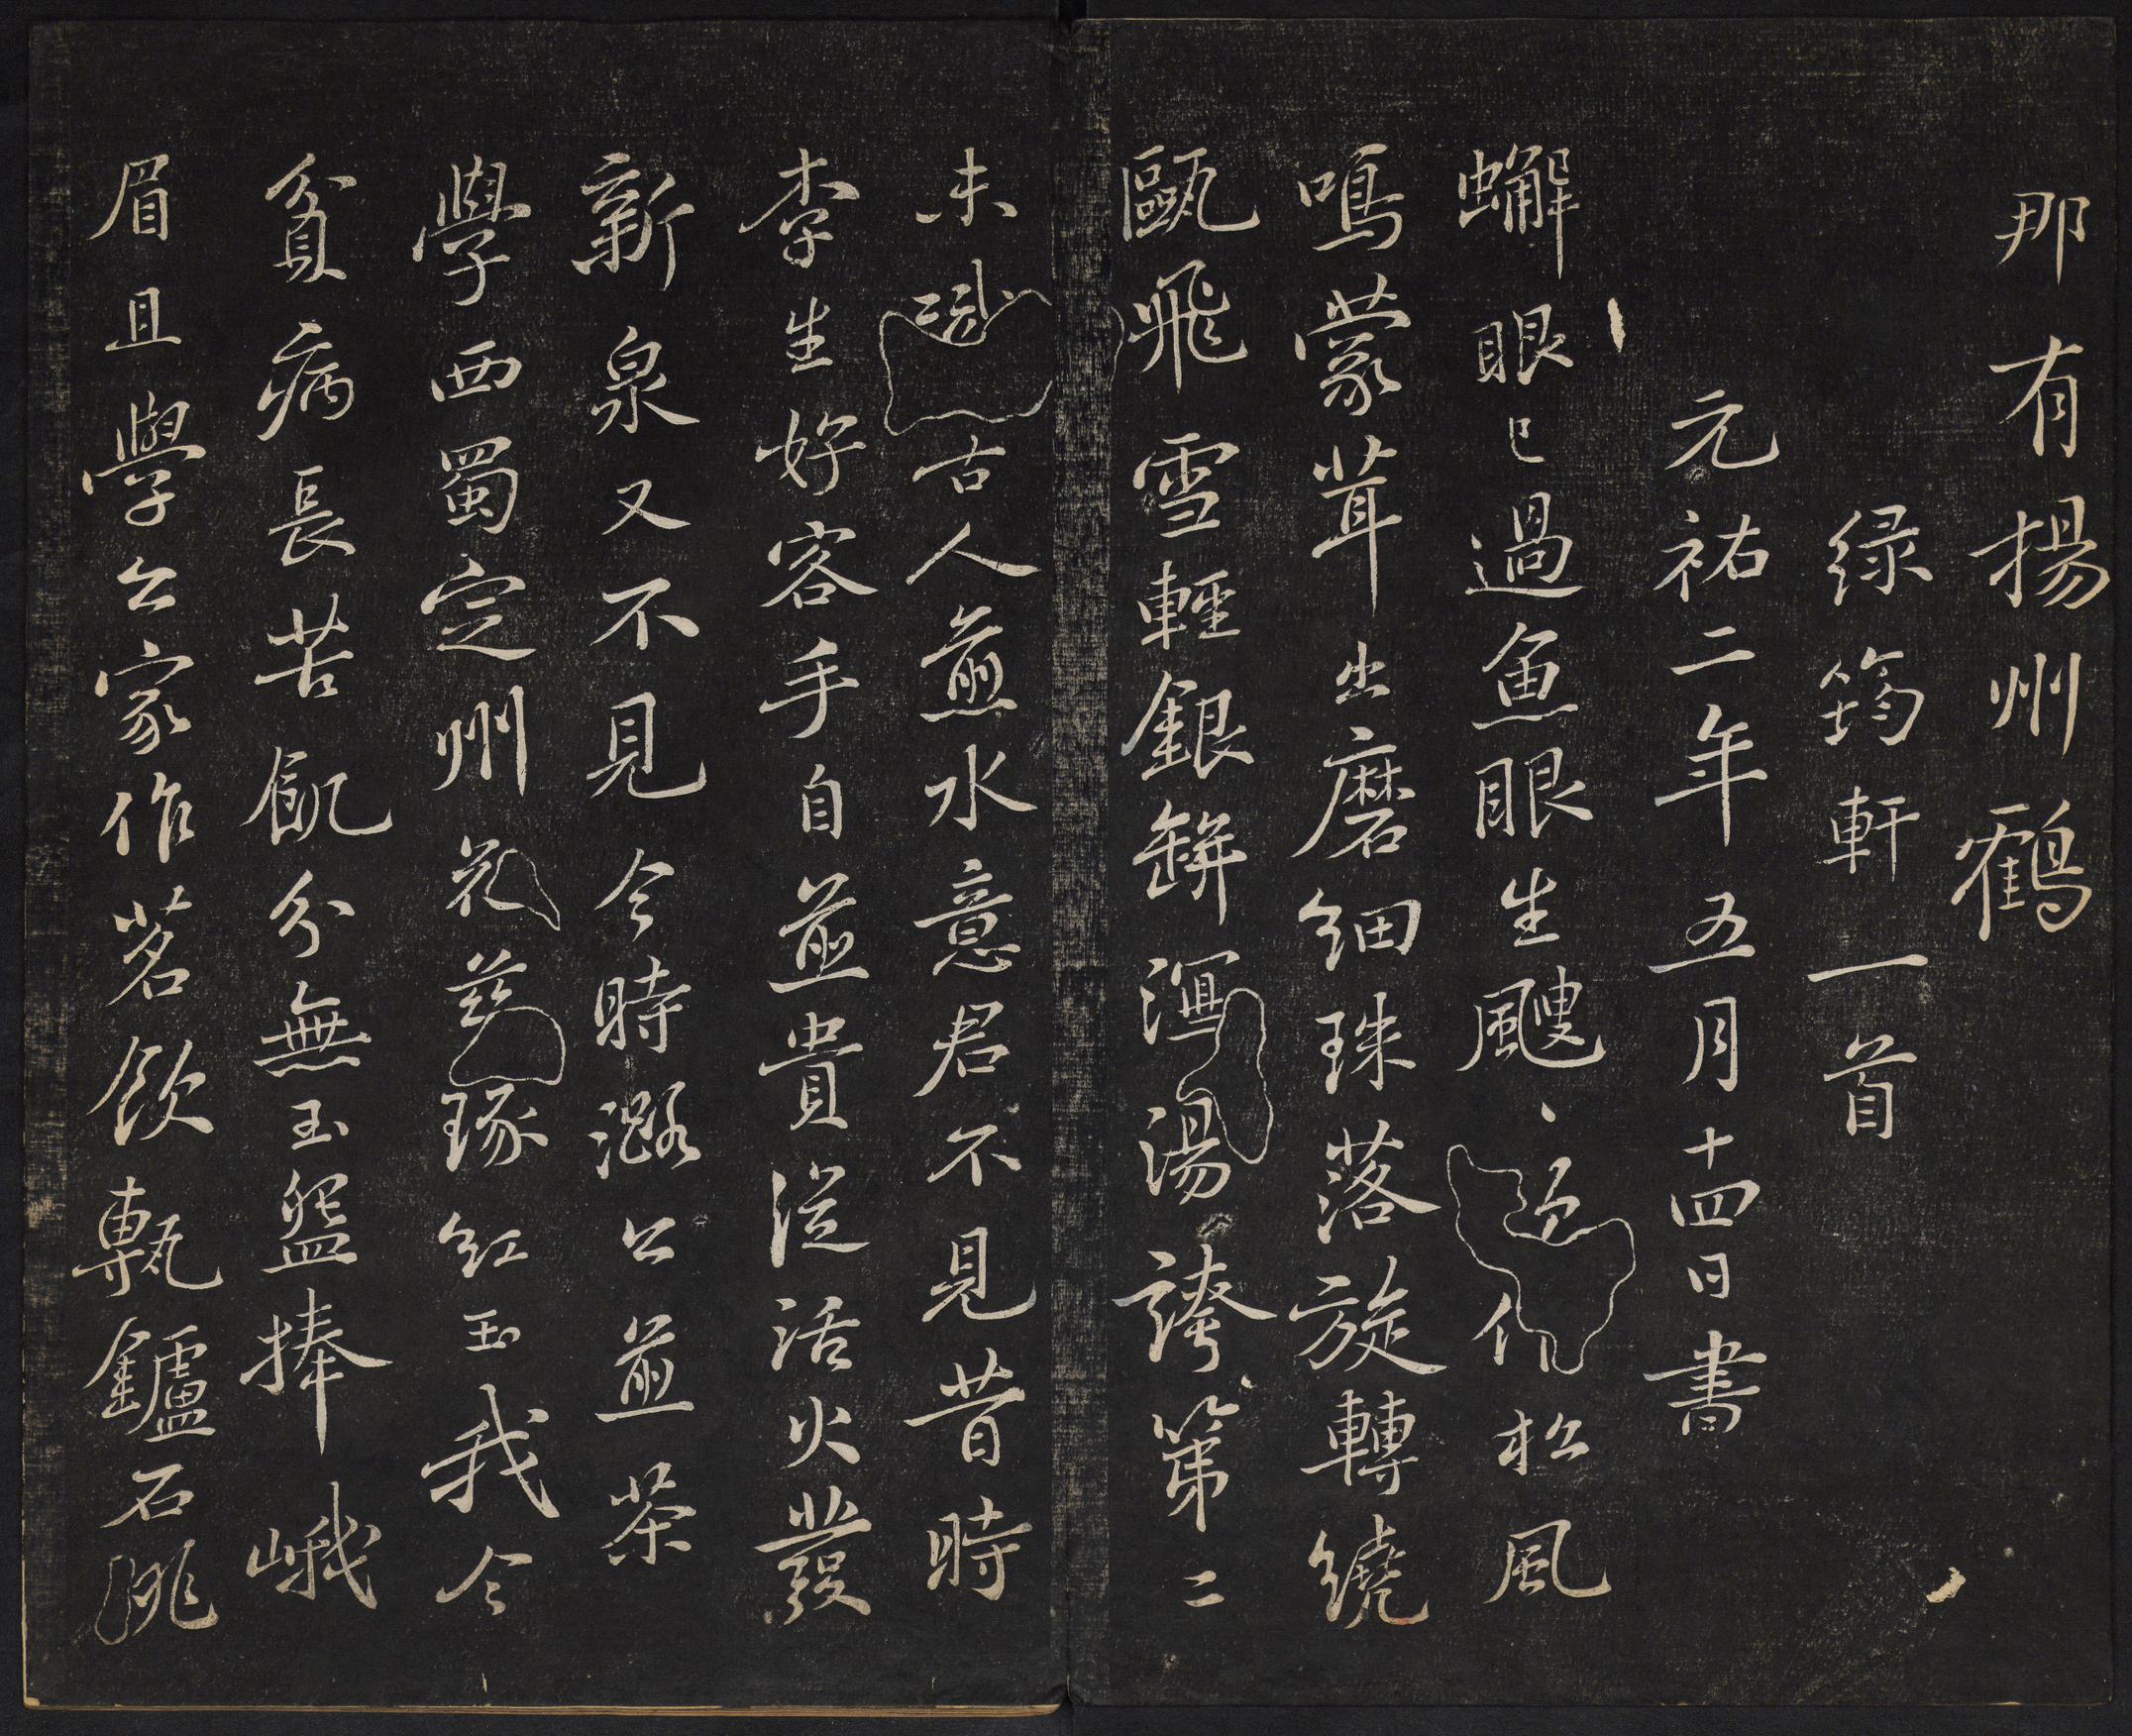 那有揚州鶴
緑筠軒一首
元祐二年五月十四日書
蠏眼已過魚眼生颼、欲作松風
鳴蒙茸出磨細珠落旋轉繞
甌飛雪輕銀缾瀉湯誇第二
未識古人煎水意君不見昔時
李生好客手自煎貴從活火發
新泉又不見今時潞公煎茶
學西蜀定州花瓷琢紅玉我今
貧病長苦飢分無玉盌捧峨
眉且學公家作茗飲塼鑪石銚